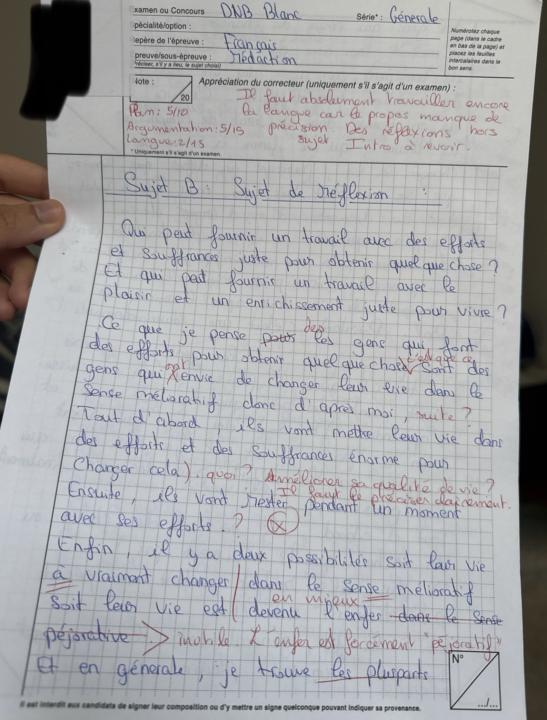 Examen ou Concours DNB Blanc Série* : Génerale
spécialité/option :
Repère de l'épreuve : Français
preuve/sous-épreuve : rédaction
Numérotez chaque
page (dans le cadre
en bas de la page) et
placez les feuilles
intercalaires dans le
bon sens.
Note :
20
Appréciation du correcteur (uniquement s'il s'agit d'un examen) :
Il faut absolument travailler encore
la langue car le propos manque de
précision Des réflexions hors
sujet Intro à revoir.
Plan : 5/10
Argumentation : 5/15
Langue : 2/15
* Uniquement s'il s'agit d'un examen.
Sujet B : Sujet de réflexion :
Qui peut fournir un travail avec des efforts
et souffrances juste pour obtenir quelque chose ?
Et qui peut fournir un travail avec le
plaisir et un enrichissement juste pour vivre ?
Ce que je pense pour des les gens qui font
des efforts pour obtenir quelque chose c'est que ce sont des
gens qui ont envie de changer leur vie dans le
Sense mélioratif donc d'apres moi, suite ?
Tout d'abord, ils vont mettre leur vie dans
des efforts et des souffrances énorme pour
Changer cela). quoi ? Améliorer sa qualité de vie ?
Il faut le préciser clairement.
Ensuite, ils vont rester pendant un moment
avec ses efforts. ?
Enfin, il y a deux possibilités soit leur vie
à vraiment changer dans le sense mélioratif
en mieux
soit leur vie est devenu l'enfer dans le Sense
péjorative inutile. L'enfer est forcément "péjoratif"
Et en génerale, je trouve les plusparts
N°
.../...
Il est interdit aux candidats de signer leur composition ou d'y mettre un signe quelconque pouvant indiquer sa provenance.